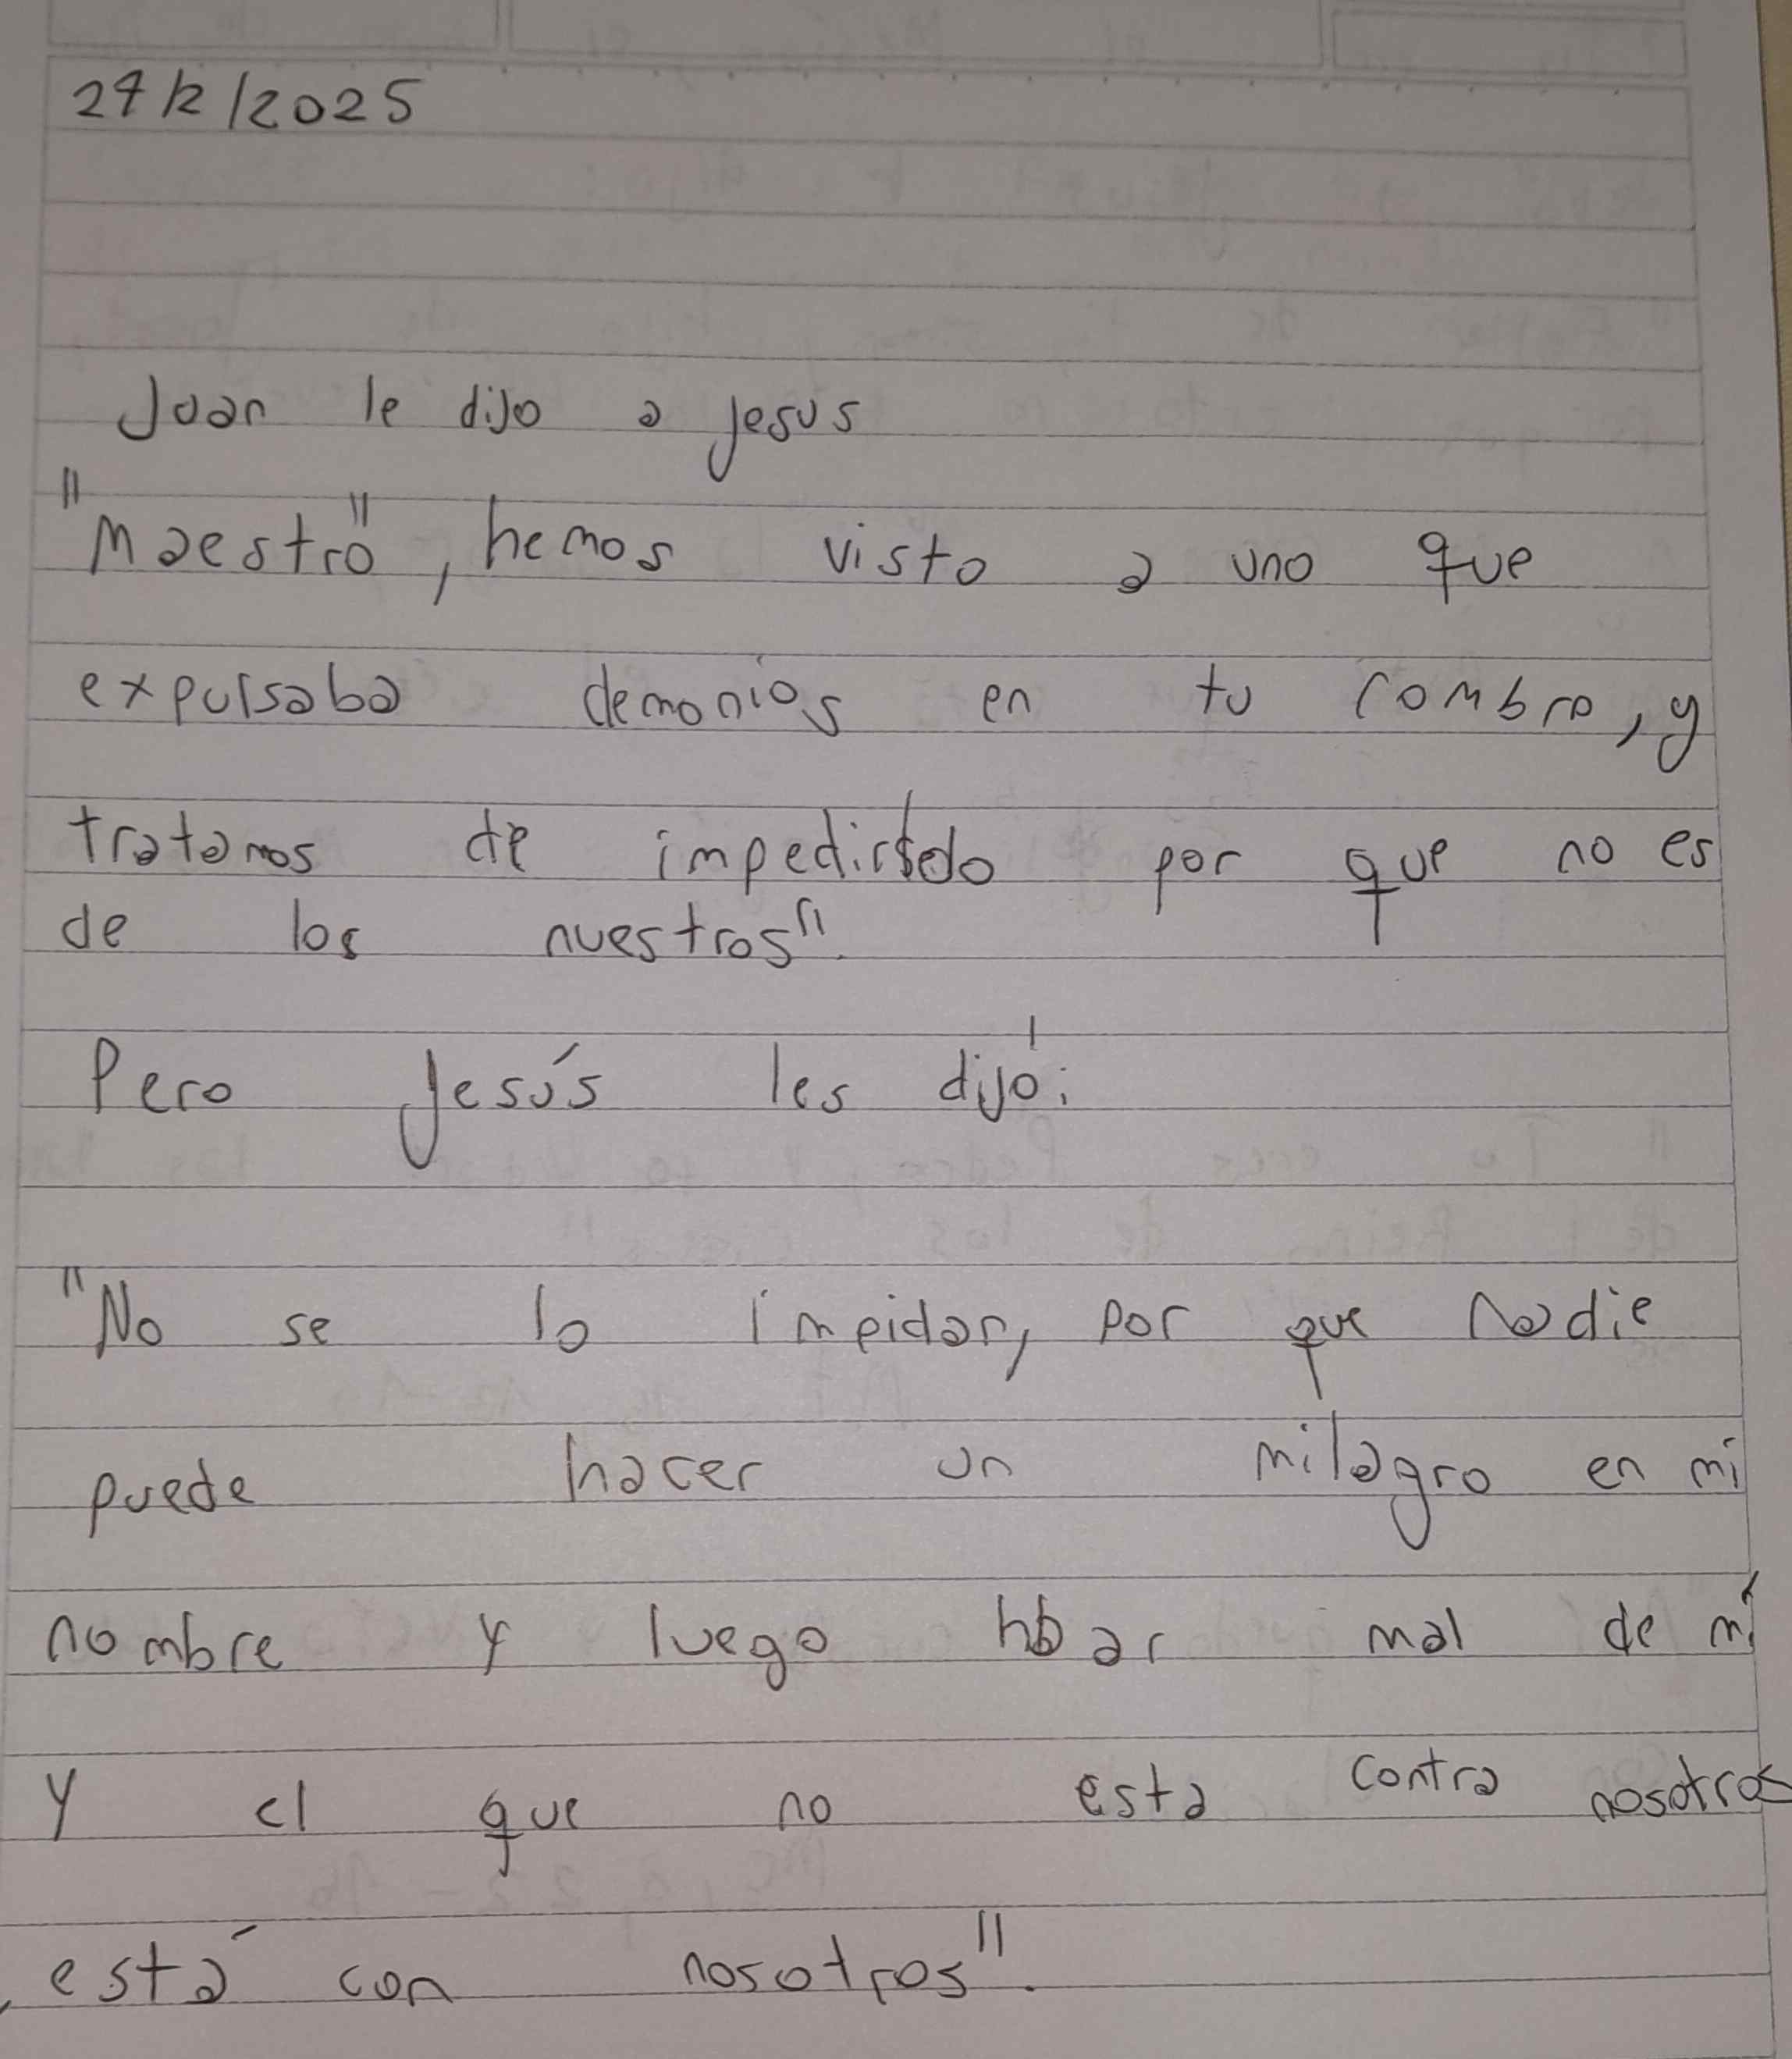 27/2/2025
Juan le dijo a jesús
"Maestro", hemos visto a uno que
expulsaba demonios en tu nombre, y
tratamos de impedirselo por que no es
de los nuestros".
Pero Jesús les dijo:
"No se lo impidan, por que Nadie
puede hacer un milagro en mi
nombre y luego hbar mal de mí
Y el que no esta contra nosotros
está con nosotros".